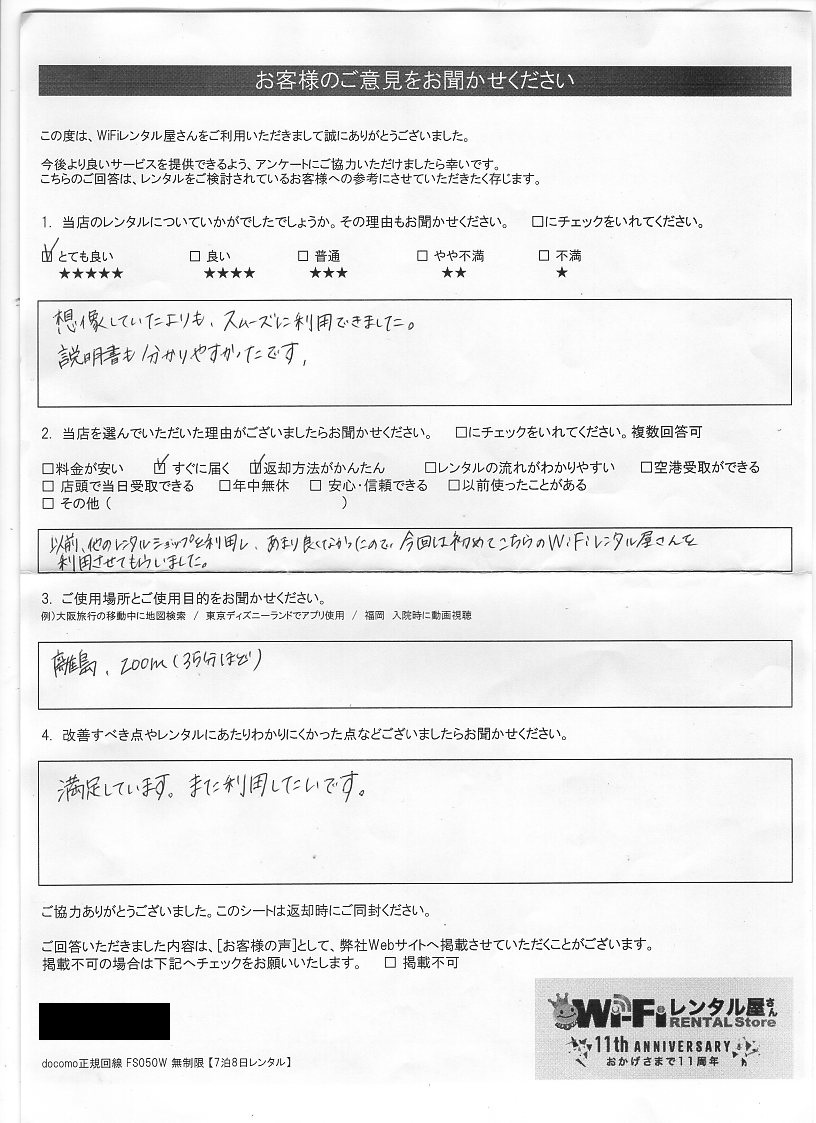 お客様のご意見をお聞かせください
この度は、WiFiレンタル屋さんをご利用いただきまして誠にありがとうございました。
今後より良いサービスを提供できるよう、アンケートにご協力いただけましたら幸いです。
こちらのご回答は、レンタルをご検討されているお客様への参考にさせていただきたく存じます。
1. 当店のレンタルについていかがでしたでしょうか。その理由もお聞かせください。 □にチェックをいれてください。
☑ とても良い □ 良い □ 普通 □ やや不満 □ 不満
★★★★★ ★★★★ ★★★ ★★ ★
想像していたよりも、スムーズに利用できました。
説明書も分かりやすかったです。
2. 当店を選んでいただいた理由がございましたらお聞かせください。 □にチェックをいれてください。複数回答可
□料金が安い ☑ すぐに届く ☑返却方法がかんたん □レンタルの流れがわかりやすい □空港受取ができる
□ 店頭で当日受取できる □年中無休 □ 安心・信頼できる □以前使ったことがある
□ その他 ( )
以前、他のレンタルショップを利用し、あまり良くなかったので、今回は初めてこちらのWiFiレンタル屋さんを
利用させてもらいました。
3. ご使用場所とご使用目的をお聞かせください。
例)大阪旅行の移動中に地図検索 / 東京ディズニーランドでアプリ使用 / 福岡 入院時に動画視聴
離島、zoom(35分ほど)
4. 改善すべき点やレンタルにあたりわかりにくかった点などございましたらお聞かせください。
満足しています。また利用したいです。
ご協力ありがとうございました。このシートは返却時にご同封ください。
ご回答いただきました内容は、[お客様の声]として、弊社Webサイトへ掲載させていただくことがございます。
掲載不可の場合は下記へチェックをお願いいたします。 □ 掲載不可
Wi-Fiレンタル屋さん
RENTAL Store
11th ANNIVERSARY
おかげさまで11周年
docomo正規回線 FS050W 無制限【7泊8日レンタル】